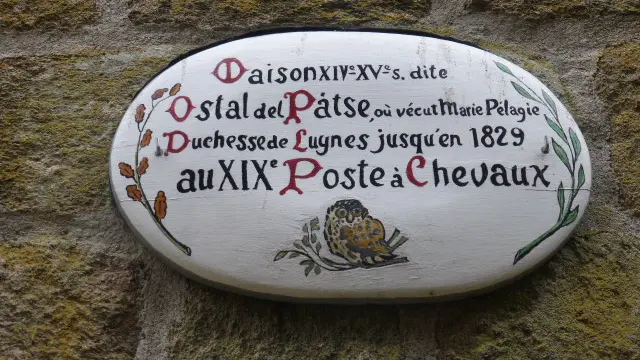 Maison XIVe XVe s. dite
Ostal del Pátse, où vécut Marie Pélagie
Duchesse de Luynes jusqu'en 1829
au XIXe Poste à Chevaux